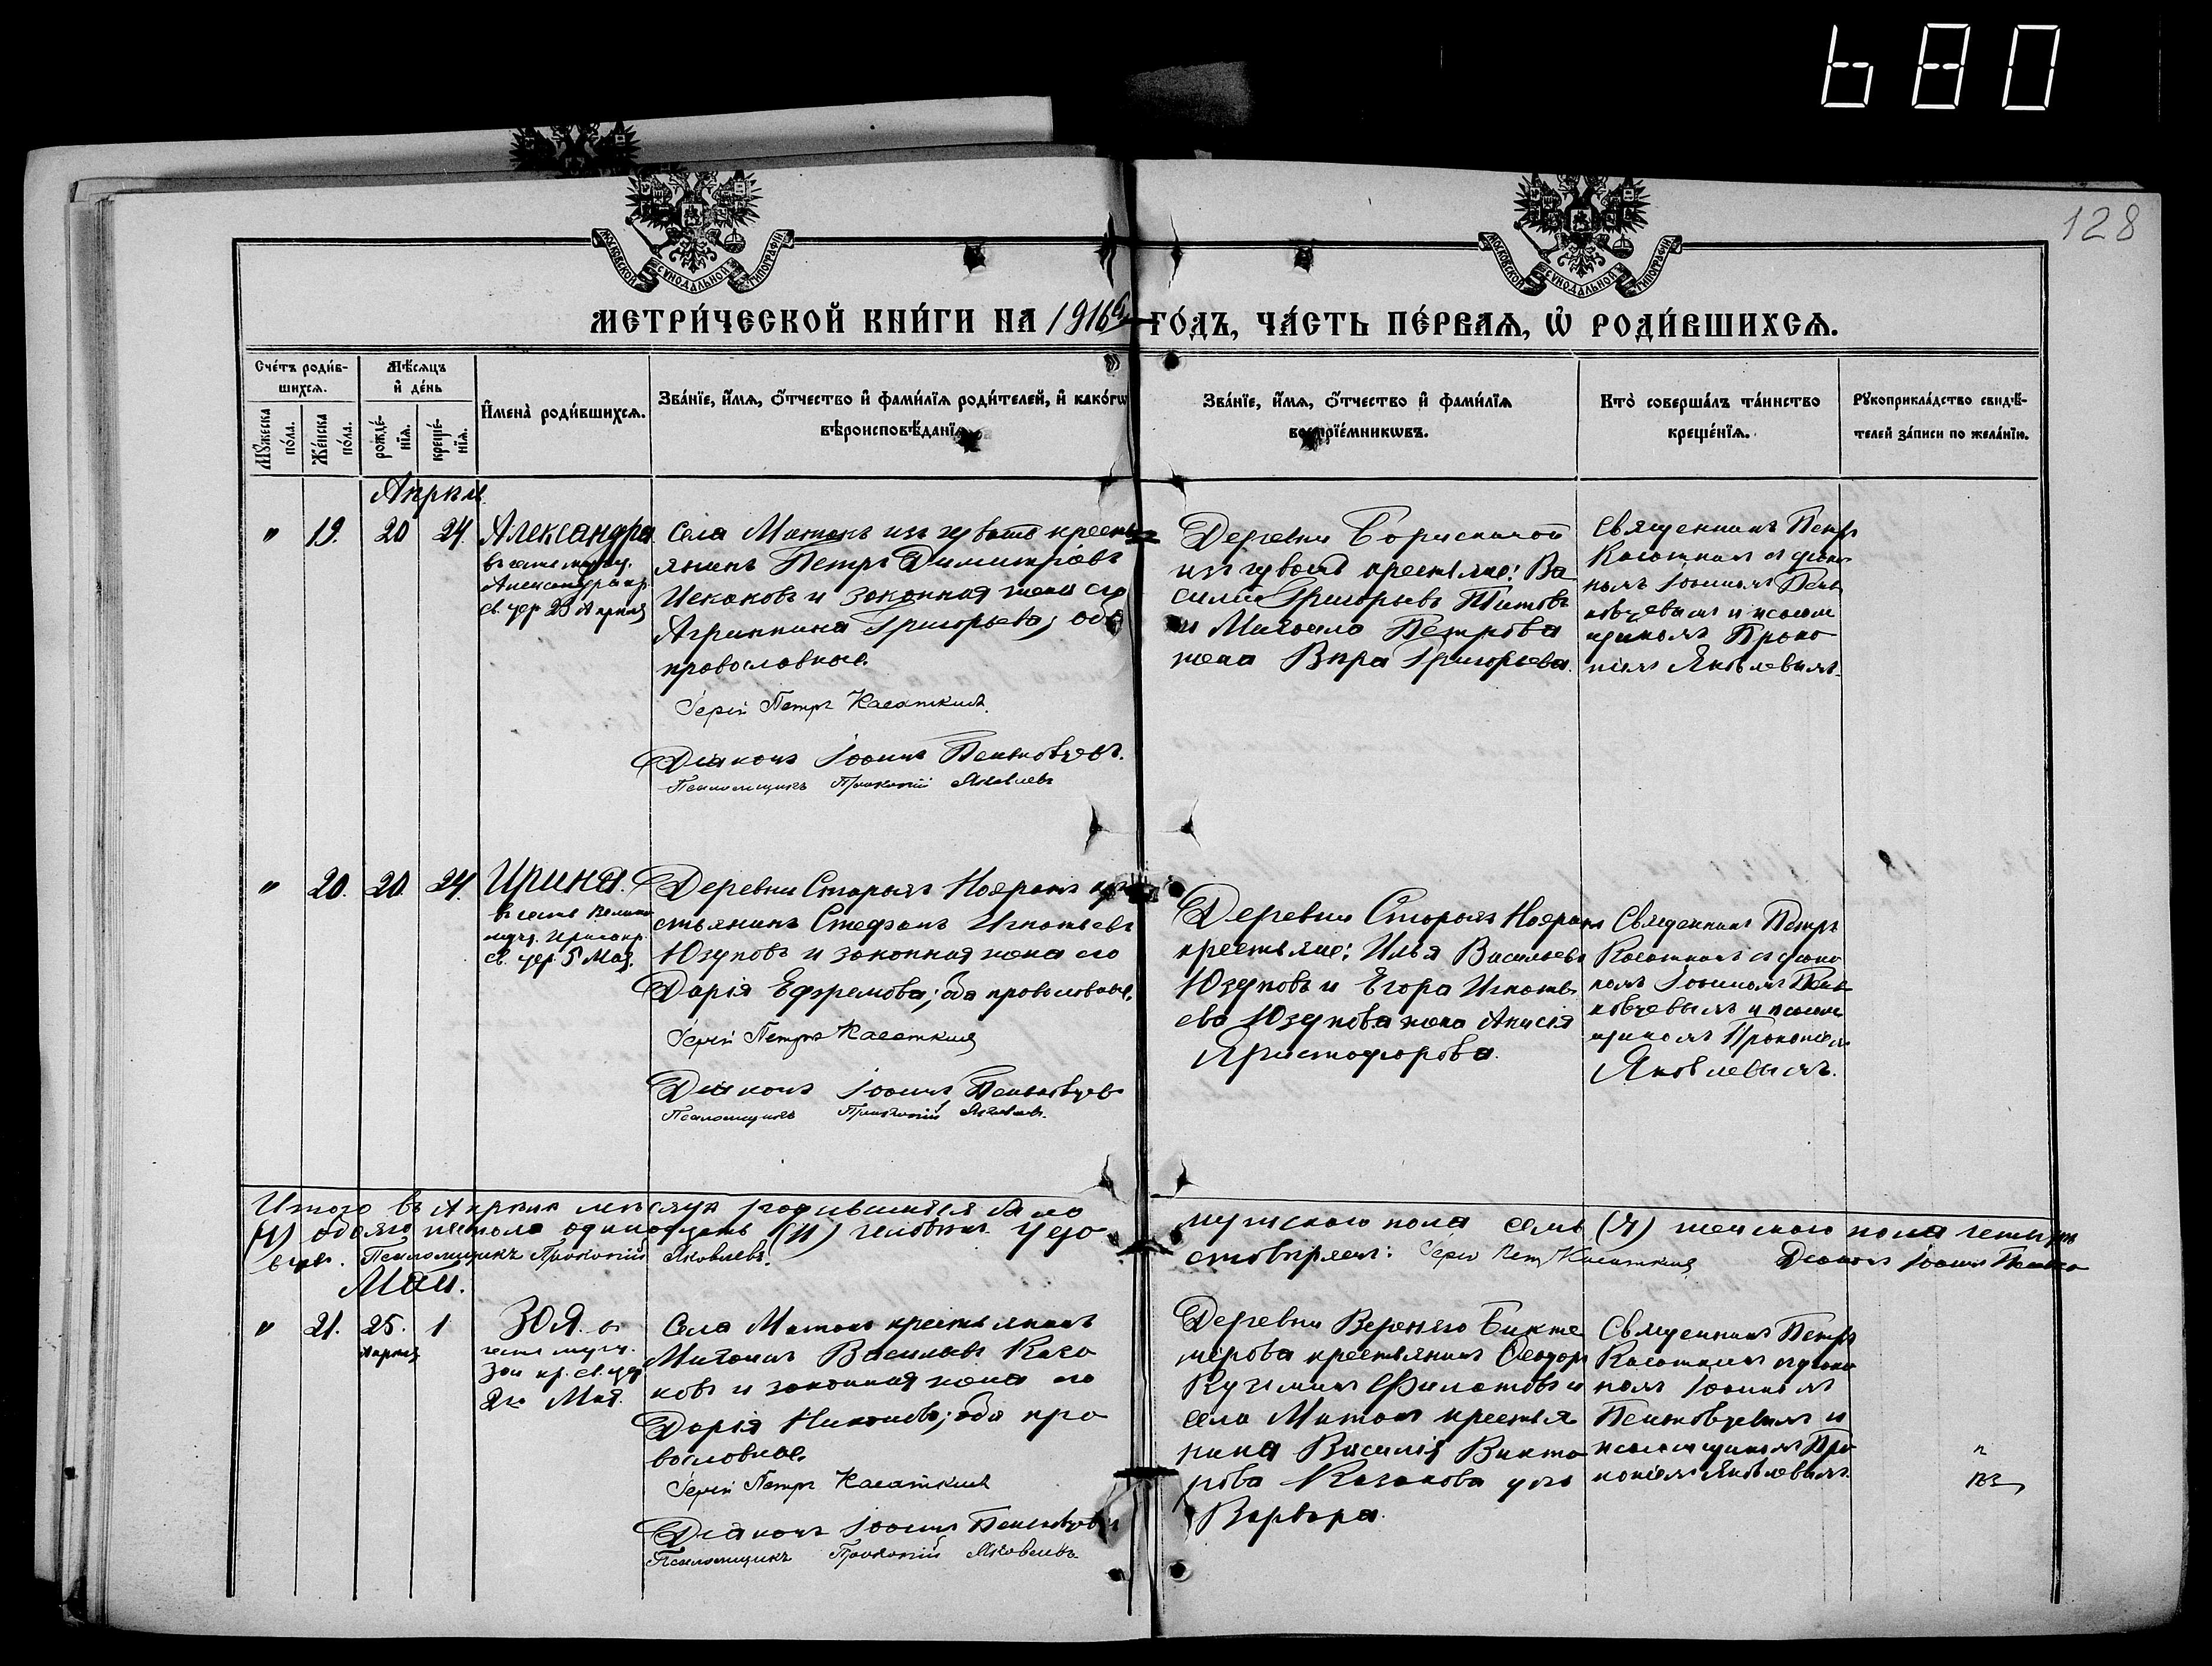 680
128
МОСКОВСКОЙ СѴНОДАЛЬНОЙ ТИПОГРАФІИ
МОСКОВСКОЙ СѴНОДАЛЬНОЙ ТИПОГРАФІИ
МЕТРИ́ЧЕСКОЙ КНИ́ГИ НА 1916й ГО́ДЪ, ЧА́СТЬ ПЕ́РВАѦ, Ѡ҆ РОДИ́ВШИХСѦ.
Сче́тъ роди́в-
шихсѧ.
Мѣ́сѧцъ
и҆ де́нь
Мꙋ́жеска по́ла.
Же́нска по́ла.
рожде́-
нїѧ.
креще́-
нїѧ.
И҆мена̀ роди́вшихсѧ.
Зва́нїе, и҆́мѧ, ѻ҆́тчество и҆ фами́лїѧ роди́телей, и҆ како́гѡ
вѣроисповѣ́данїѧ
Зва́нїе, и҆́мѧ, ѻ҆́тчество и҆ фами́лїѧ
воспрїе́мникѡвъ.
Кто̀ соверша́лъ та́инство
креще́нїѧ.
Рꙋкоприкла́дство свидѣ́-
телей за́писи по жела́нїю.
Апрѣль
" 19. 20 24. Александра
въ честь муч.
Александры пр.
св. цер. 23 Апрѣля
Села Матакъ изъ чувашъ кресть
янинъ Петръ Димитріевъ
Искаковъ и законная жена его
Агриппина Григорьева; оба
православные.
Іерей Петръ Касаткинъ
Діаконъ Іоаннъ Пеньковцевъ.
Псаломщикъ Прокопій Яковлевъ
Деревни Борискиной
изъ чувашъ крестьяне: Ва
силій Григорьевъ Титовъ
и Михаила Петрова
жена Вѣра Григорьева.
Священникъ Петръ
Касаткинъ съ діако
номъ Іоанномъ Пень
ковцевымъ и псалом
щикомъ Проко
піемъ Яковлевымъ.
" 20. 20. 24. Ирина.
въ честь Велико
муч. Ирины пр.
св. цер. 5 Мая.
Деревни Старыхъ Нояранъ кре
стьянинъ Стефанъ Игнатьевъ
Юзуповъ и законная жена его
Дарія Ефремова; оба православные.
Іерей Петръ Касаткинъ
Діаконъ Іоаннъ Пеньковцевъ
Псаломщикъ Прокопій Яковлевъ.
Деревни Старыхъ Нояранъ
крестьяне: Илья Васильевъ
Юзуповъ и Егора Игнать
ева Юзупова жена Анисія
Христофорова.
Священникъ Петръ
Касаткинъ съ діако
номъ Іоанномъ Пень
ковцевымъ и псалом
щикомъ Прокопіемъ
Яковлевымъ.
Итого въ Апрѣлѣ мѣсяцѣ родившихся было
мужского пола семь (7) женского пола четыре
(4) обоего же пола одинадцать (11) человѣкъ. Удо
стовѣряемъ: Іерей Петръ Касаткинъ Діаконъ Іоаннъ Пенько
вцевъ. Псаломщикъ Прокопій Яковлевъ.
Май.
" 21. 25. 1 Зоя. въ
Апрѣля
честь муч.
Зои пр. св. цер
2го Мая.
Села Матакъ крестьянинъ
Михаилъ Васильевъ Каза
ковъ и законная жена его
Дарія Никитиева; оба пра
вославные.
Іерей Петръ Касаткинъ
Діаконъ Іоаннъ Пеньковцевъ
Псаломщикъ Прокопій Яковлевъ
Деревни Верхняго Бикте
мерова крестьянинъ Ѳеодоръ
Кузьминъ Филатовъ и
села Матакъ крестья
нина Василія Викто
рова Казакова дочь
Варвара.
Священникъ Петръ
Касаткинъ съ діако
номъ Іоанномъ
Пеньковцевымъ и
псаломщикомъ Про
копіемъ Яковлевымъ.